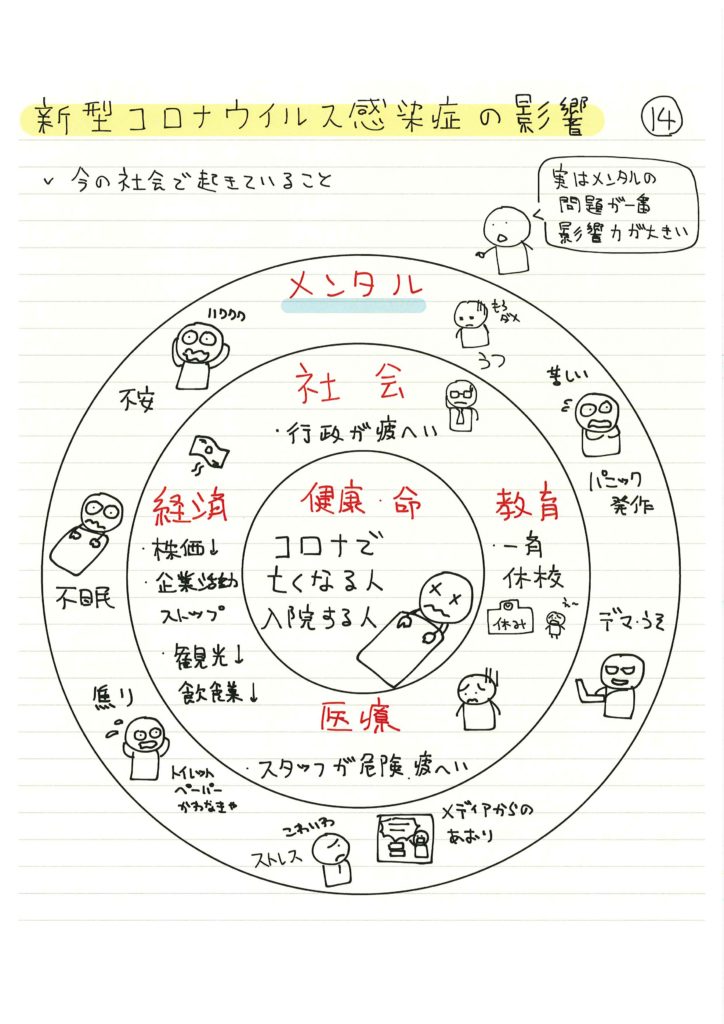 新型コロナウイルス感染症の影響
⑭
✓ 今の社会で起きていること
実はメンタルの
問題が一番
影響力が大きい
メンタル
ハワワワ
不安
もう
ダメ
うつ
苦しい
パニック
発作
社会
・行政が疲へい
経済
・株価↓
・企業活動
ストップ
・観光↓
飲食業↓
健康・命
コロナで
亡くなる人
入院する人
教育
・一斉
休校
休み
え〜
不眠
デマ・うそ
医療
・スタッフが危険、疲へい
焦り
トイレット
ペーパー
かわなきゃ
こわいわ
ストレス
メディアからの
あおり